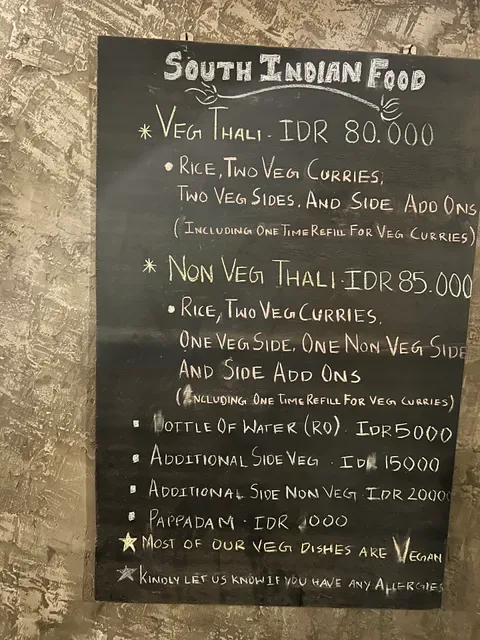 SOUTH INDIAN FOOD
* VEG THALI - IDR 80.000
• RICE, TWO VEG CURRIES,
TWO VEG SIDES, AND SIDE ADD ONS
(INCLUDING ONE TIME REFILL FOR VEG CURRIES)
* NON VEG THALI - IDR 85.000
• RICE, TWO VEG CURRIES,
ONE VEG SIDE, ONE NON VEG SIDE
AND SIDE ADD ONS
(INCLUDING ONE TIME REFILL FOR VEG CURRIES)
▪ BOTTLE OF WATER (RO) - IDR 5000
▪ ADDITIONAL SIDE VEG - IDR 15000
▪ ADDITIONAL SIDE NON VEG - IDR 20000
▪ PAPPADAM - IDR
★ MOST OF OUR VEG DISHES ARE VEGAN
★ KINDLY LET US KNOW IF YOU HAVE ANY ALLERGIES